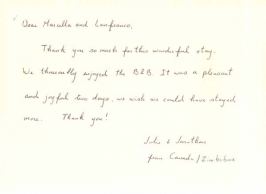 Dear Marcella and Lanfranco,
Thank you so much for this wonderful stay.
We thoroughly enjoyed the B&B. It was a pleasant
and joyful two days, we wish we could have stayed
more. Thank you!
Julie & Jonathan
from Canada / Zimbabwe